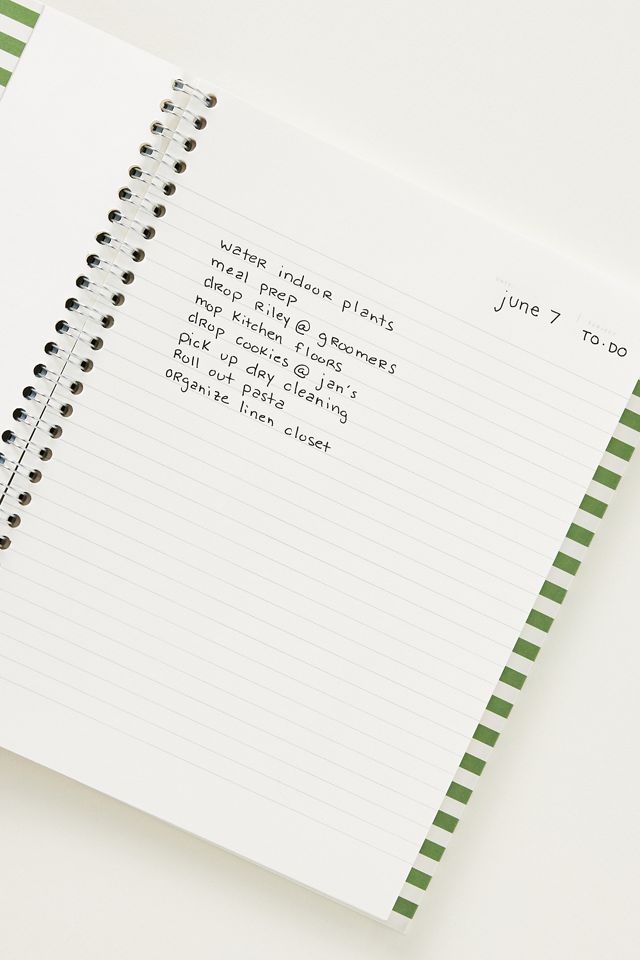 june 7
TO·DO
water indoor plants
meal prep
drop Riley @ groomers
mop kitchen floors
drop cookies @ jan's
pick up dry cleaning
Roll out pasta
organize linen closet